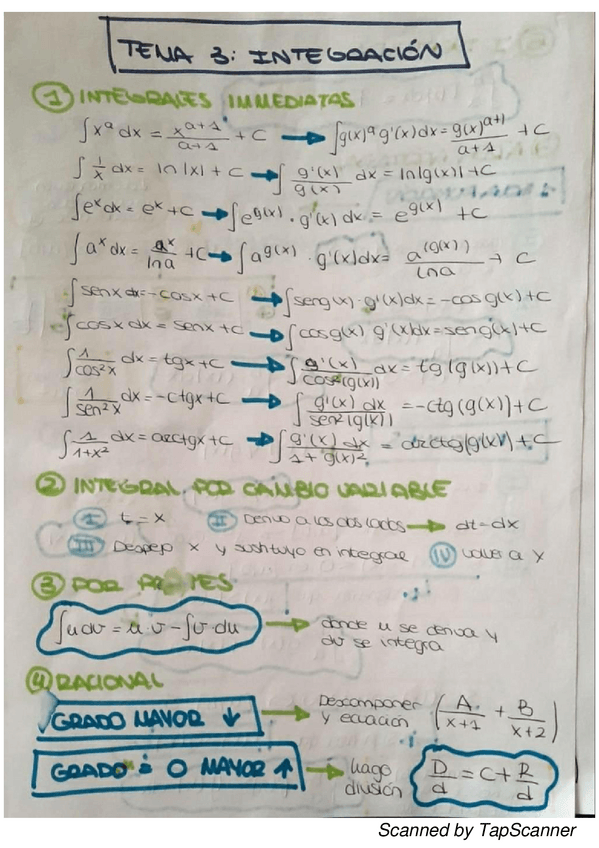 TEMA 3: INTEGRACIÓN
① INTEGRALES IMMEDIATAS
∫x^a dx = x^(a+1)/(a+1) + C → ∫g(x)^a g'(x)dx = g(x)^(a+1)/(a+1) + C
∫ 1/x dx = ln|x| + C → ∫ g'(x)/g(x) dx = ln|g(x)| + C
∫e^x dx = e^x + C → ∫e^g(x) · g'(x) dx = e^g(x) + C
∫a^x dx = a^x/ln a + C → ∫a^g(x) · g'(x)dx = a^(g(x))/ln a + C
∫senx dx = -cosx + C → ∫sen g(x) · g'(x)dx = -cos g(x) + C
∫cosx dx = senx + C → ∫cos g(x) g'(x)dx = sen g(x) + C
∫ 1/cos²x dx = tgx + C → ∫ g'(x)/cos²(g(x)) dx = tg(g(x)) + C
∫ 1/sen²x dx = -ctgx + C → ∫ g'(x) dx/sen²(g(x)) = -ctg(g(x)) + C
∫ 1/(1+x²) dx = arctgx + C → ∫ g'(x) dx/(1+g(x)²) = arctg(g(x)) + C
② INTEGRAL POR CAMBIO VARIABLE
Ⓘ t = x Ⓘ Ⓘ Derivo a los dos lados → dt = dx
III Despejo x y sustituyo en integral IV vuelvo a x
③ POR PARTES
∫u dv = u · v - ∫v · du → donde u se deriva y
dv se integra
④ RACIONAL
GRADO MAYOR ↓ → Descomponer
y ecuación (A/(x+1) + B/(x+2))
GRADO = O MAYOR ↑ → hago
división D/d = C + R/d
Scanned by TapScanner